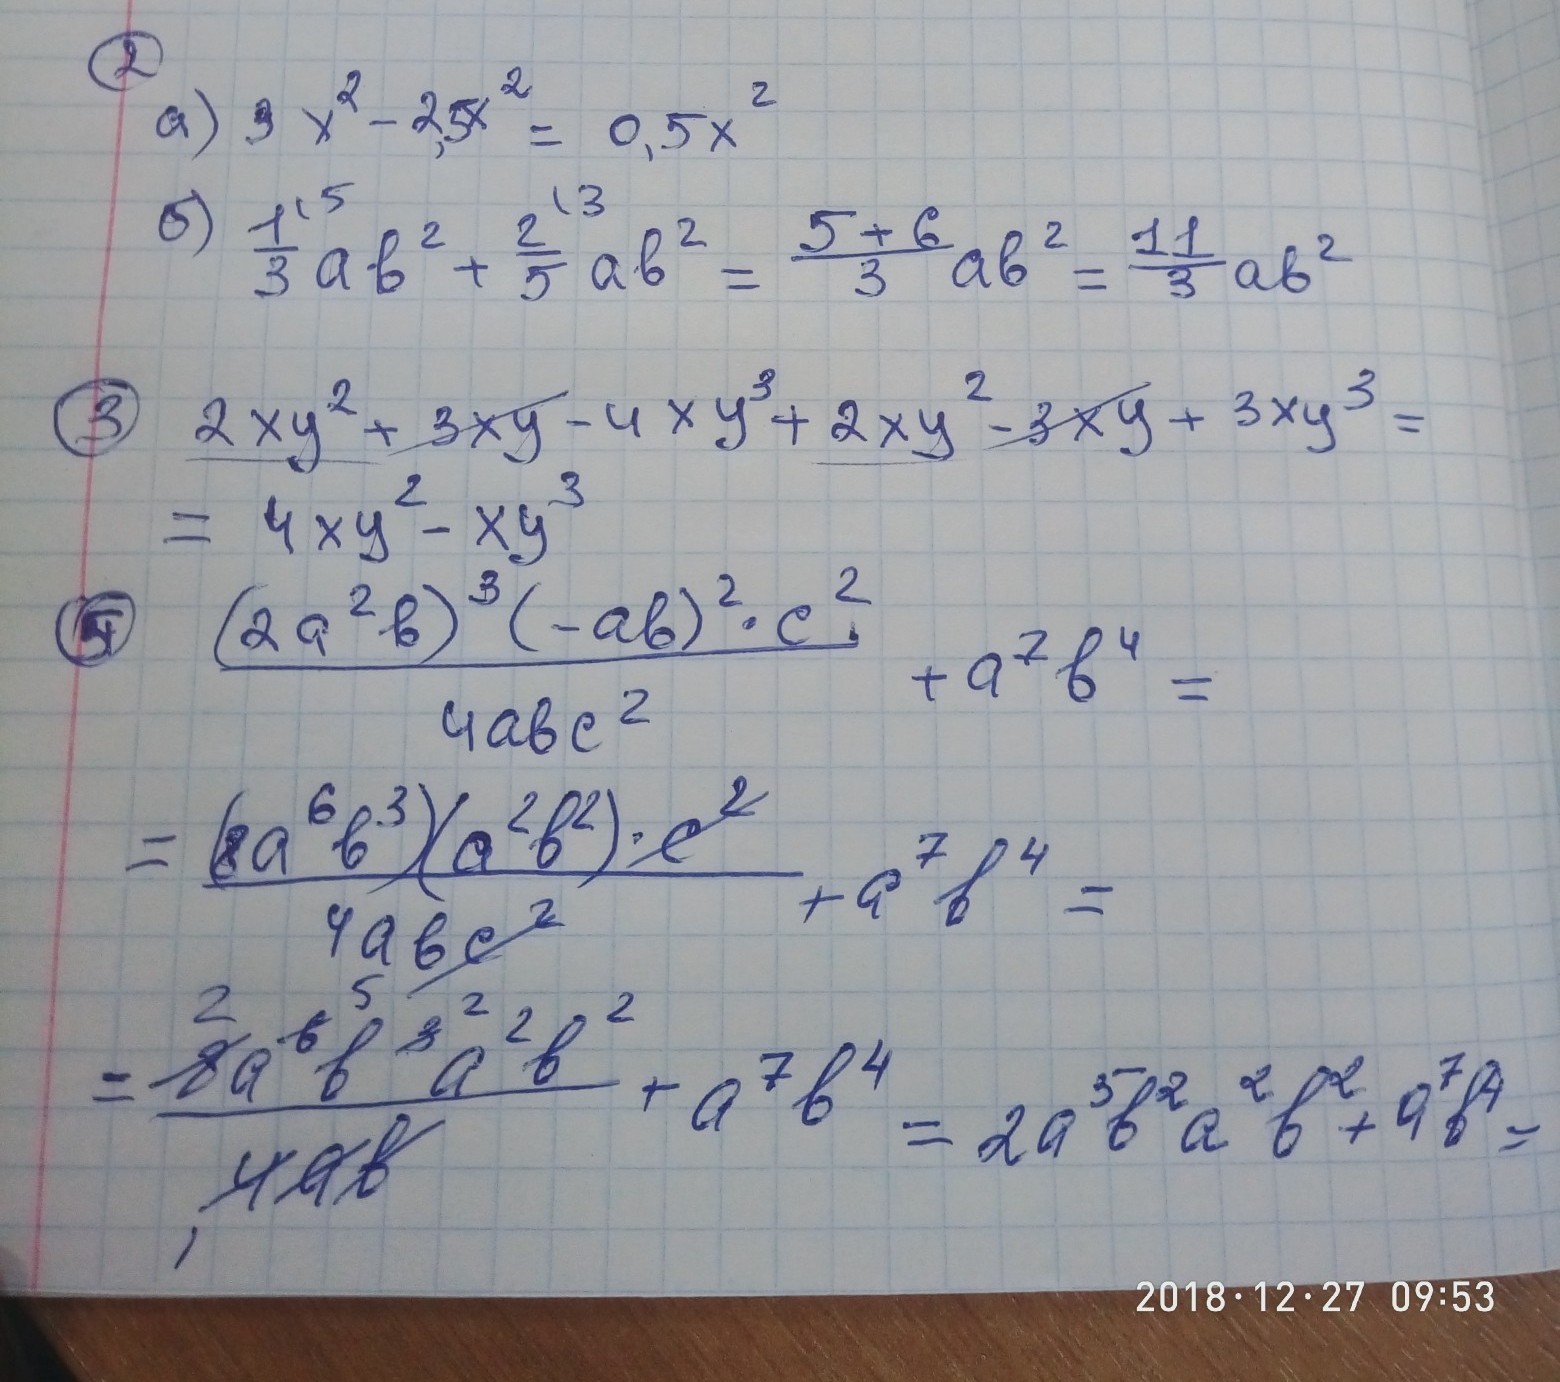 2
а) 3x² - 2,5x² = 0,5x²
б) 1/3⁽⁵ ab² + 2/5⁽³ ab² = (5+6)/3 ab² = 11/3 ab²
3 2xy² + 3xy - 4xy³ + 2xy² - 3xy + 3xy³ =
= 4xy² - xy³
(2a²b)³(-ab)² · c² / 4abc² + a⁷b⁴ =
= (8a⁶b³)(a²b²) · c² / 4abc² + a⁷b⁴ =
= 8a⁶b³a²b² / 4ab + a⁷b⁴ = 2a⁵b²a²b² + a⁷b⁴ =
2018·12·27 09:53